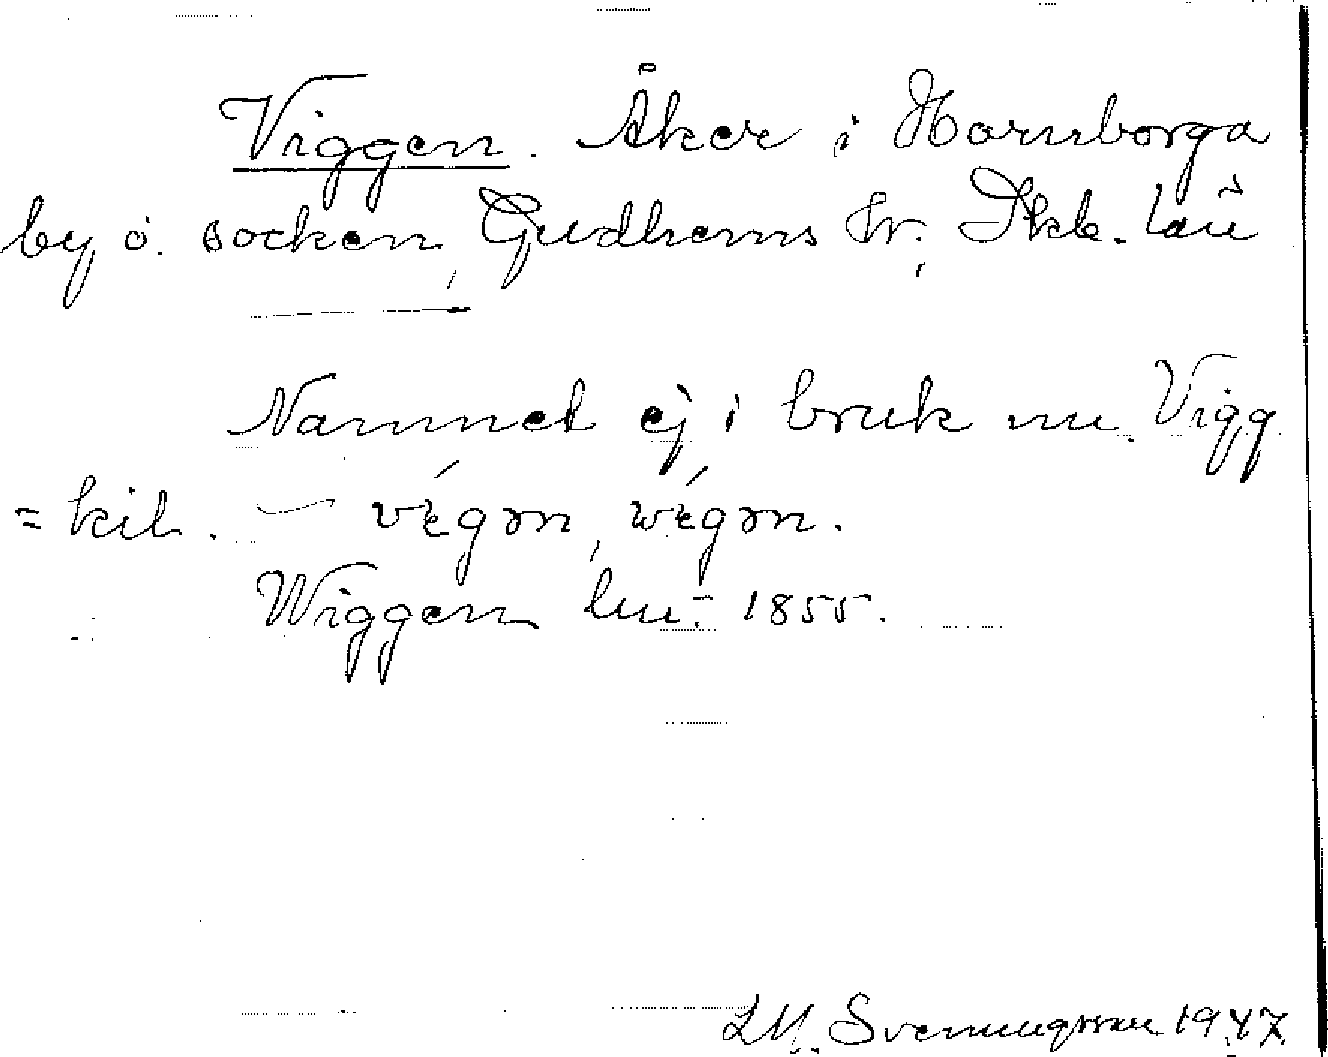 Viggen. Åker i Hornborga
by o. socken, Gudhems hr, Skb. län
Namnet ej i bruk nu. Vigg
= kil. — végən, wégən.
Wiggen lm. 1855.
Svenungsson 1947